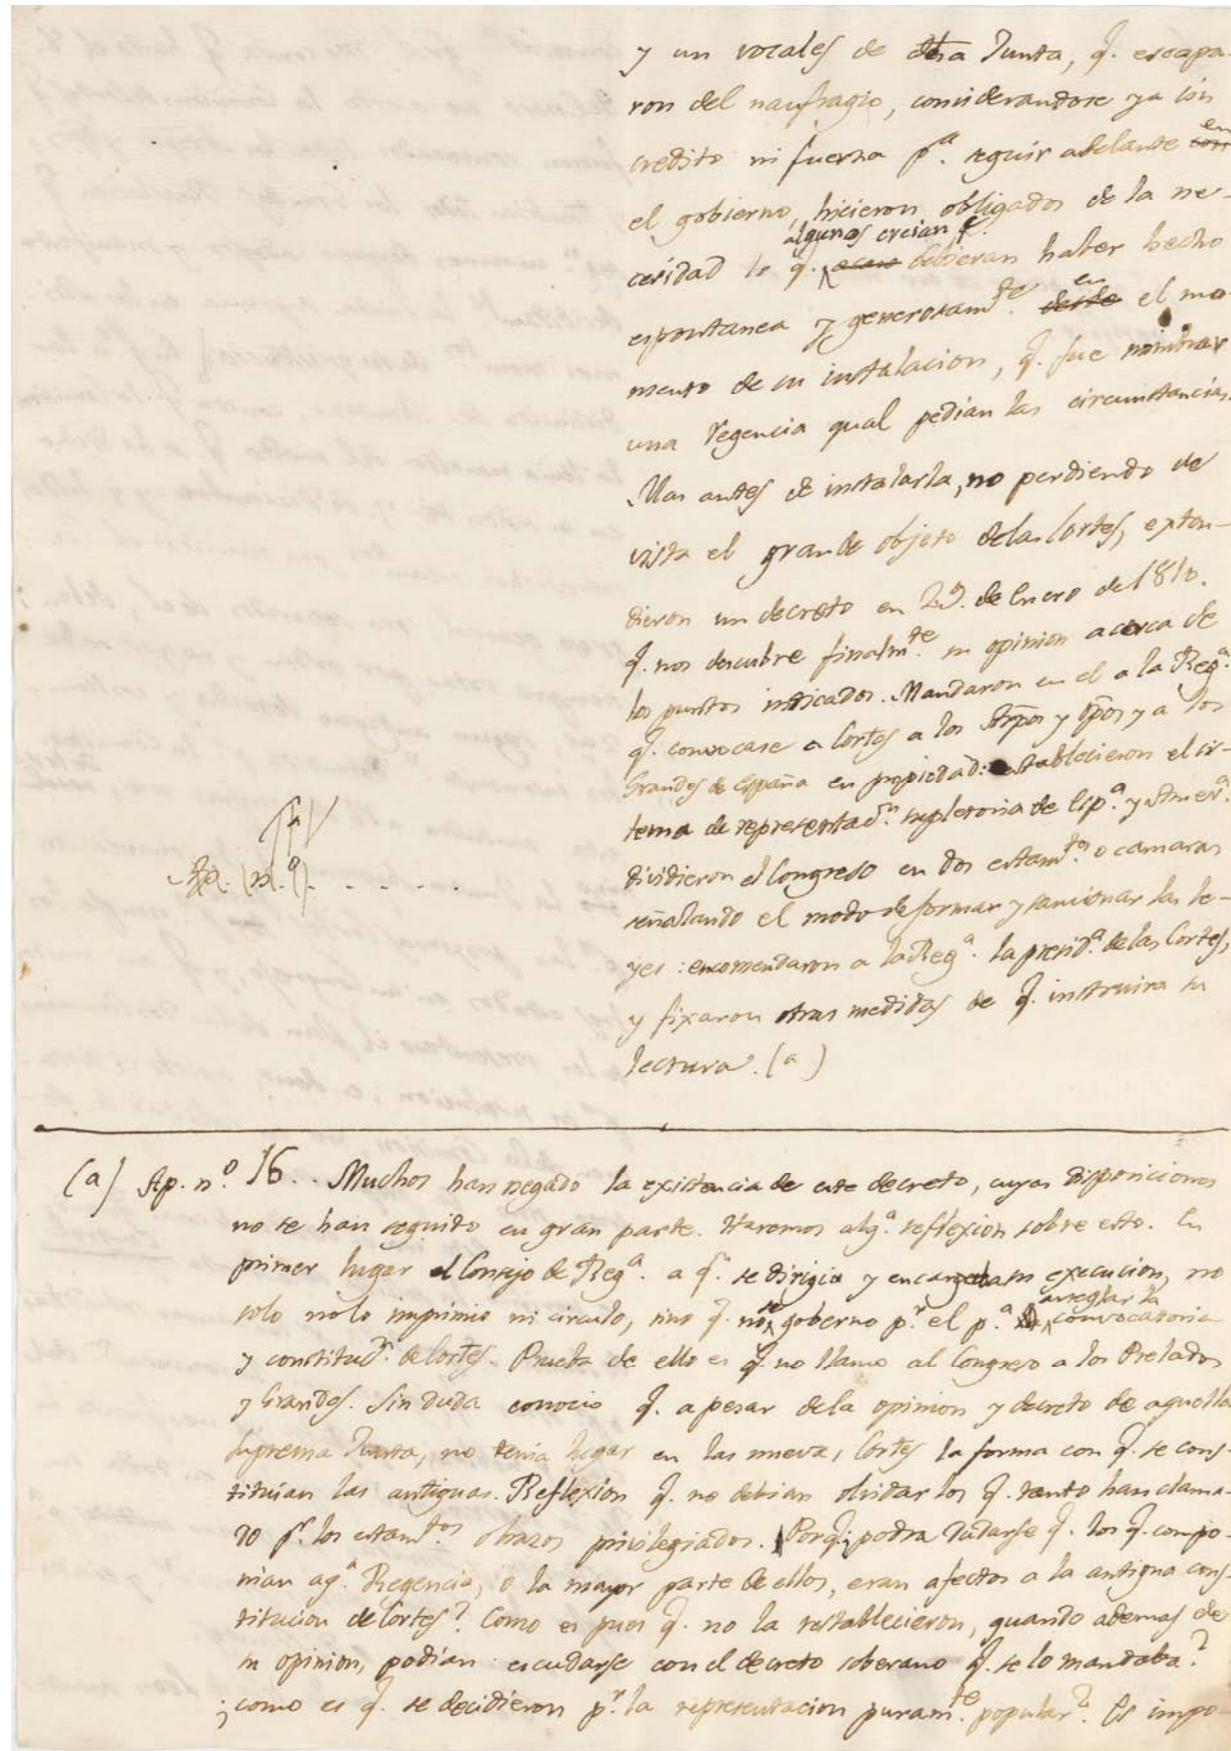 y un vocales de dha Junta, q. escapa-
ron del naufragio, considerandose ya sin
credito ni fuerza p.ª seguir adelante en
el gobierno, hicieron obligados de la ne-
algunos creian q.
cesidad lo q. debieran haber hecho
espontanea y generosam.te en el mo-
mento de su instalacion, q. fue nombrar
una Regencia qual pedian las circunstancias.
Mas antes de instalarla, no perdiendo de
vista el grande objeto de las Cortes, exten-
dieron un decreto en 29. de Enero de 1810.
q. nos descubre finalm.te su opinion acerca de
los puntos indicados. Mandaron en el a la Reg.ª
q. convocase a Cortes a los Arzpos y Obpos y a los
Grandes de España en propiedad: establecieron el sis-
tema de representac.n supletoria de Esp.ª y Amer.ª
dividieron el Congreso en dos estam.tos o camaras
señalando el modo de formar y sancionar las le-
yes: encomendaron a la Reg.ª la presid.ª de las Cortes,
y fixaron otras medidas de q. instruira su
lectura. (a)
Ap. (n.º). . . . .
(a) Ap. n.º 16. . Muchos han negado la existencia de este decreto, cuyas disposiciones
no se han seguido en gran parte. Haremos alg.ª reflexion sobre esto. En
primer lugar el Consejo de Reg.ª a q.n se dirigia y encargaba su execucion, no
solo no lo imprimio ni circulo, sino q. no se goberno p.r el p.ª arreglar la convocatoria
y constituc.n de Cortes. Prueba de ello es q. no llamo al Congreso a los Prelados
y Grandes. Sin duda conocio q. a pesar de la opinion y decreto de aquella
Suprema Junta, no tenia lugar en las nuevas Cortes la forma con q. se cons-
tituian las antiguas. Reflexion q. no debian olvidar los q. tanto han clama-
do p.r los estam.tos o brazos privilegiados. Porq. ¿podra dudarse q. los q. compo-
nian aq.ª Regencia, o la mayor parte de ellos, eran afectos a la antigua cons-
titucion de Cortes? Como es pues q. no la restablecieron, quando ademas de
su opinion, podian escudarse con el decreto soberano q. se lo mandaba?
¿como es q. se decidieron p.r la representacion puram.te popular? Es impo-